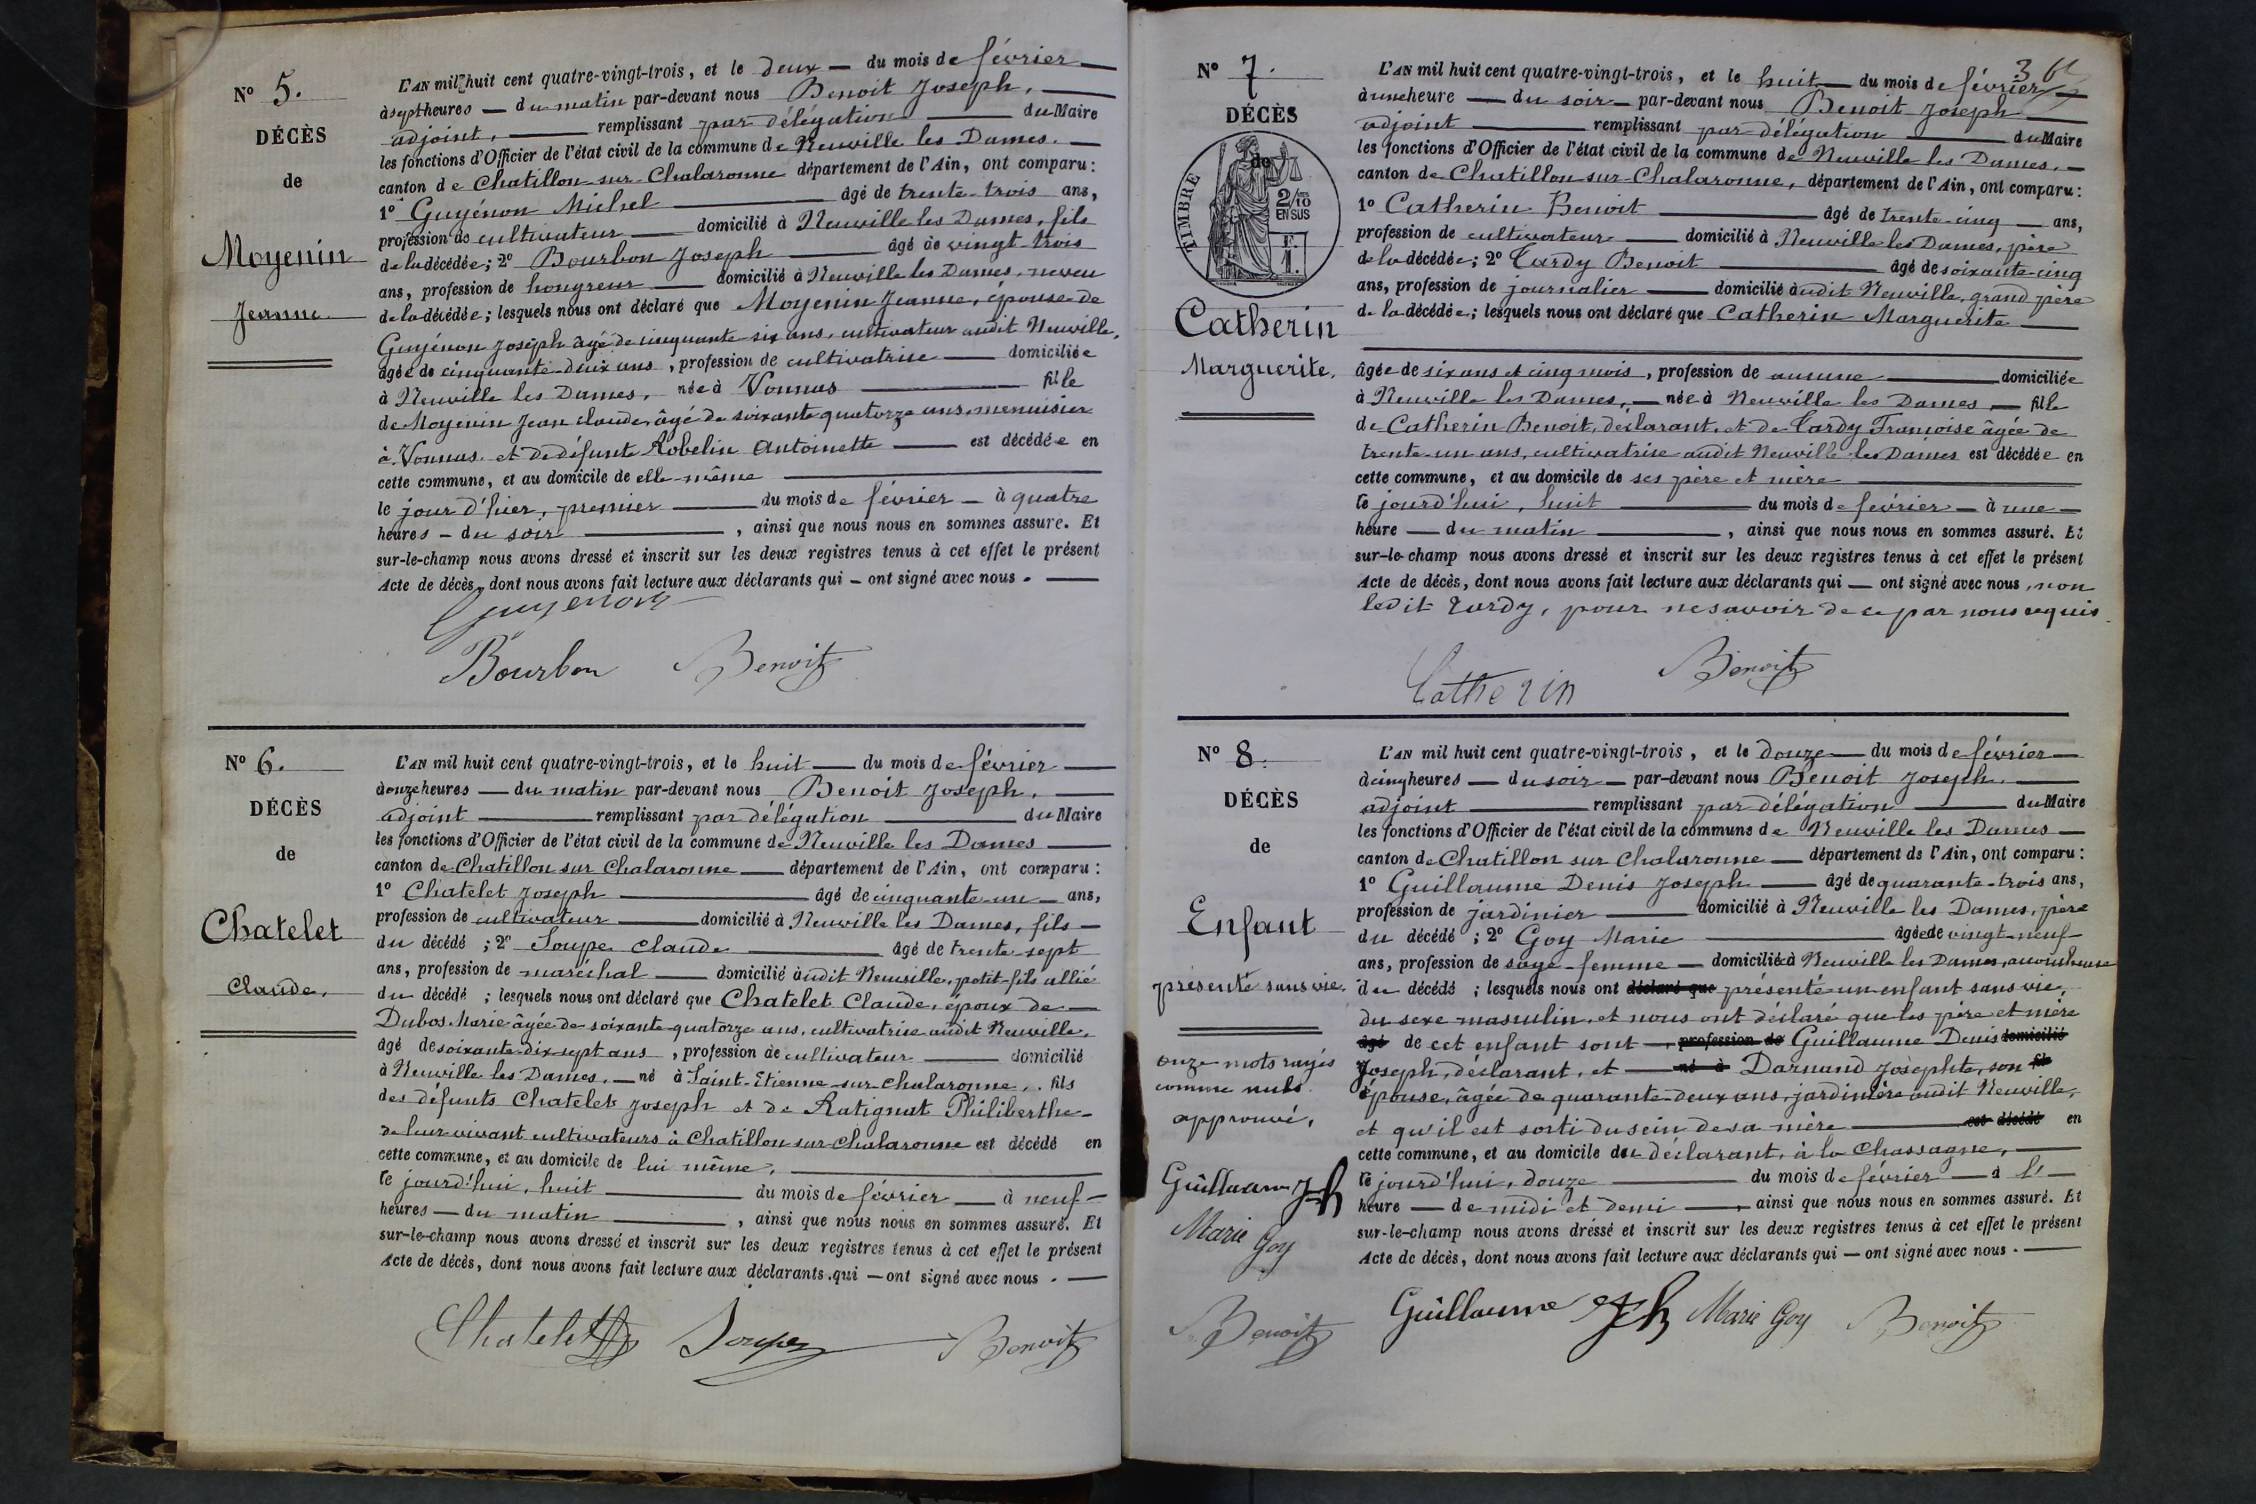 N° 5.
DÉCÈS
de
Moyenin
Jeanne.
L'AN mil huit cent quatre-vingt-trois, et le deux — du mois de février —
à sept heures — du matin par-devant nous Benoit Joseph, —
adjoint, — remplissant par délégation — du Maire
les fonctions d'Officier de l'état civil de la commune de Neuville les Dames. —
canton de Chatillon sur Chalaronne département de l'Ain, ont comparu :
1° Guyénon Michel — âgé de trente-trois ans,
profession de cultivateur — domicilié à Neuville les Dames, fils
de la décédée ; 2° Bourbon Joseph — âgé de vingt-trois
ans, profession de hongreur — domicilié à Neuville les Dames, neveu
de la décédée ; lesquels nous ont déclaré que Moyenin Jeanne, épouse de
Guyénon Joseph âgé de cinquante six ans, cultivateur audit Neuville,
âgée de cinquante-deux ans, profession de cultivatrice — domiciliée
à Neuville les Dames, née à Vonnas — fille
de Moyenin Jean Claude, âgé de soixante quatorze ans, menuisier
à Vonnas. et de défunte Robelin Antoinette — est décédée en
cette commune, et au domicile de elle-même —
le jour d'hier, premier — du mois de février — à quatre
heures — du soir —, ainsi que nous nous en sommes assuré. Et
sur-le-champ nous avons dressé et inscrit sur les deux registres tenus à cet effet le présent
Acte de décès, dont nous avons fait lecture aux déclarants qui — ont signé avec nous. —
Guyenon
Bourbon Benoit
N° 6.
DÉCÈS
de
Chatelet
Claude.
L'AN mil huit cent quatre-vingt-trois, et le huit — du mois de février —
à onze heures — du matin par-devant nous Benoit Joseph, —
adjoint — remplissant par délégation — du Maire
les fonctions d'Officier de l'état civil de la commune de Neuville les Dames —
canton de Chatillon sur Chalaronne — département de l'Ain, ont comparu :
1° Chatelet Joseph — âgé de cinquante-un — ans,
profession de cultivateur — domicilié à Neuville les Dames, fils —
du décédé ; 2° Soupe Claude — âgé de trente-sept
ans, profession de maréchal — domicilié audit Neuville, petit-fils allié
du décédé ; lesquels nous ont déclaré que Chatelet Claude, époux de —
Dubos Marie âgée de soixante-quatorze ans, cultivatrice audit Neuville,
âgé de soixante-dix sept ans, profession de cultivateur — domicilié
à Neuville les Dames, — né à Saint-Etienne-sur-Chalaronne, . fils
des défunts Chatelet Joseph et de Ratignat Philiberthe —
de leur vivant cultivateurs à Chatillon sur Chalaronne est décédé en
cette commune, et au domicile de lui même, —
le jourd'hui, huit — du mois de février — à neuf —
heures — du matin —, ainsi que nous nous en sommes assuré. Et
sur-le-champ nous avons dressé et inscrit sur les deux registres tenus à cet effet le présent
Acte de décès, dont nous avons fait lecture aux déclarants. qui — ont signé avec nous. —
Chatelet Soupe Benoit
N° 7.
DÉCÈS
de
TIMBRE
2/10
EN SUS
Catherin
Marguerite,
L'AN mil huit cent quatre-vingt-trois, et le huit — du mois de février —
à une heure — du soir — par-devant nous Benoit Joseph —
adjoint — remplissant par délégation — du Maire
les fonctions d'Officier de l'état civil de la commune de Neuville les Dames, —
canton de Chatillon sur Chalaronne, département de l'Ain, ont comparu :
1° Catherin Benoit — âgé de trente-cinq — ans,
profession de cultivateur — domicilié à Neuville les Dames, père
de la décédée ; 2° Tardy Benoit — âgé de soixante-cinq
ans, profession de journalier — domicilié audit Neuville, grand père
de la décédée ; lesquels nous ont déclaré que Catherin Marguerite —
âgée de six ans et cinq mois, profession de aucune — domiciliée
à Neuville les Dames, — née à Neuville les Dames — fille
de Catherin Benoit, déclarant. et de Tardy Françoise âgée de
trente-un ans, cultivatrice audit Neuville les Dames est décédée en
cette commune, et au domicile de ses père et mère —
le jourd'hui, huit — du mois de février — à une —
heure — du matin —, ainsi que nous nous en sommes assuré. Et
sur-le-champ nous avons dressé et inscrit sur les deux registres tenus à cet effet le présent
Acte de décès, dont nous avons fait lecture aux déclarants qui — ont signé avec nous, non
ledit Tardy, pour ne savoir de ce par nous requis.
Catherin Benoit
N° 8.
DÉCÈS
de
Enfant
présenté sans vie.
onze mots rayés
comme nuls.
approuvé,
Guillaume Jph
Marie Goy
Benoit
L'AN mil huit cent quatre-vingt-trois, et le douze — du mois de février —
à cinq heures — du soir — par-devant nous Benoit Joseph. —
adjoint — remplissant par délégation — du Maire
les fonctions d'Officier de l'état civil de la commune de Neuville les Dames —
canton de Chatillon sur Chalaronne — département de l'Ain, ont comparu :
1° Guillaume Denis Joseph — âgé de quarante-trois ans,
profession de jardinier — domicilié à Neuville les Dames, père
du décédé ; 2° Goy Marie — âgée de vingt-neuf
ans, profession de sage-femme — domiciliée à Neuville les Dames, accoucheuse
du décédé ; lesquels nous ont déclaré que présenté un enfant sans vie,
du sexe masculin, et nous ont déclaré que les père et mère
âgé de cet enfant sont —, profession de Guillaume Denis domicilié
Joseph, déclarant, et — né à Darnand Josephte, son fils
épouse, âgée de quarante-deux ans, jardinière audit Neuville,
et qu'il est sorti du sein de sa mère — est décédé en
cette commune, et au domicile du déclarant, à la Chassagne, —
le jourd'hui, douze — du mois de février — à l' —
heure — de midi et demi —, ainsi que nous nous en sommes assuré. Et
sur-le-champ nous avons dressé et inscrit sur les deux registres tenus à cet effet le présent
Acte de décès, dont nous avons fait lecture aux déclarants qui — ont signé avec nous. —
Guillaume Jph Marie Goy Benoit